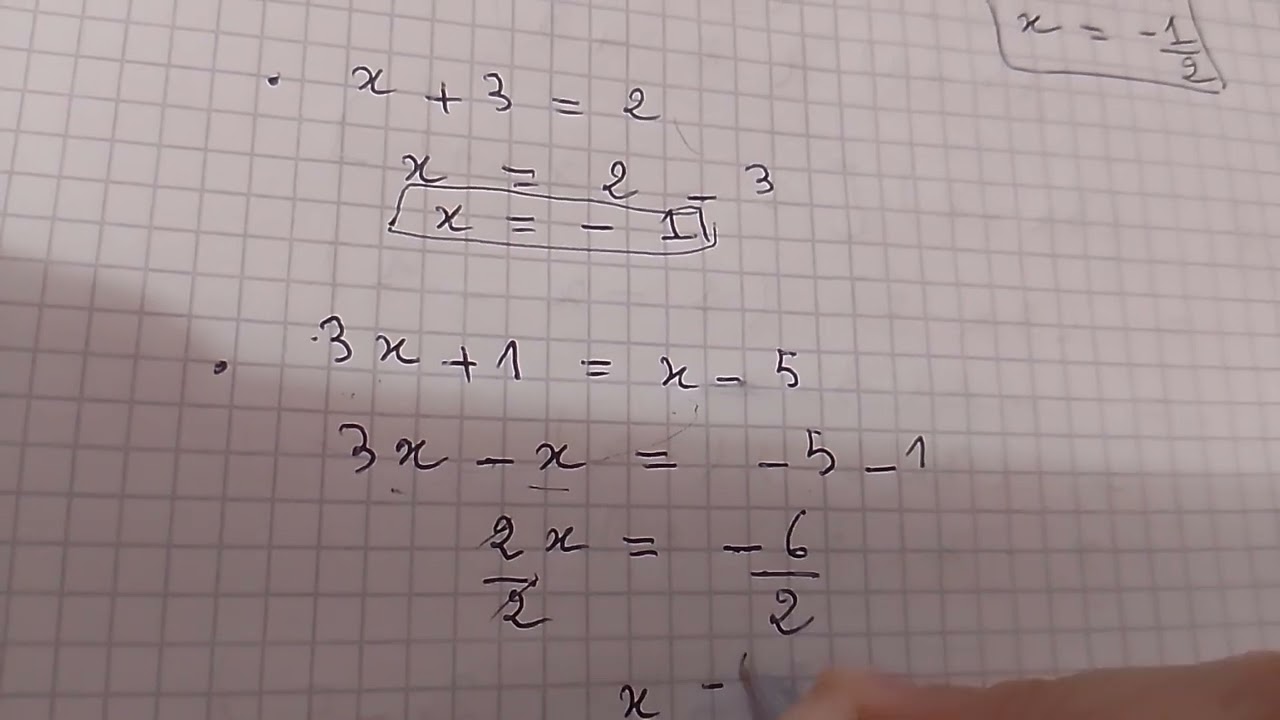 x = -1/2
• x + 3 = 2
x = 2 - 3
x = - 1
• 3x + 1 = x - 5
3x - x = -5 - 1
2x/2 = -6/2
x -